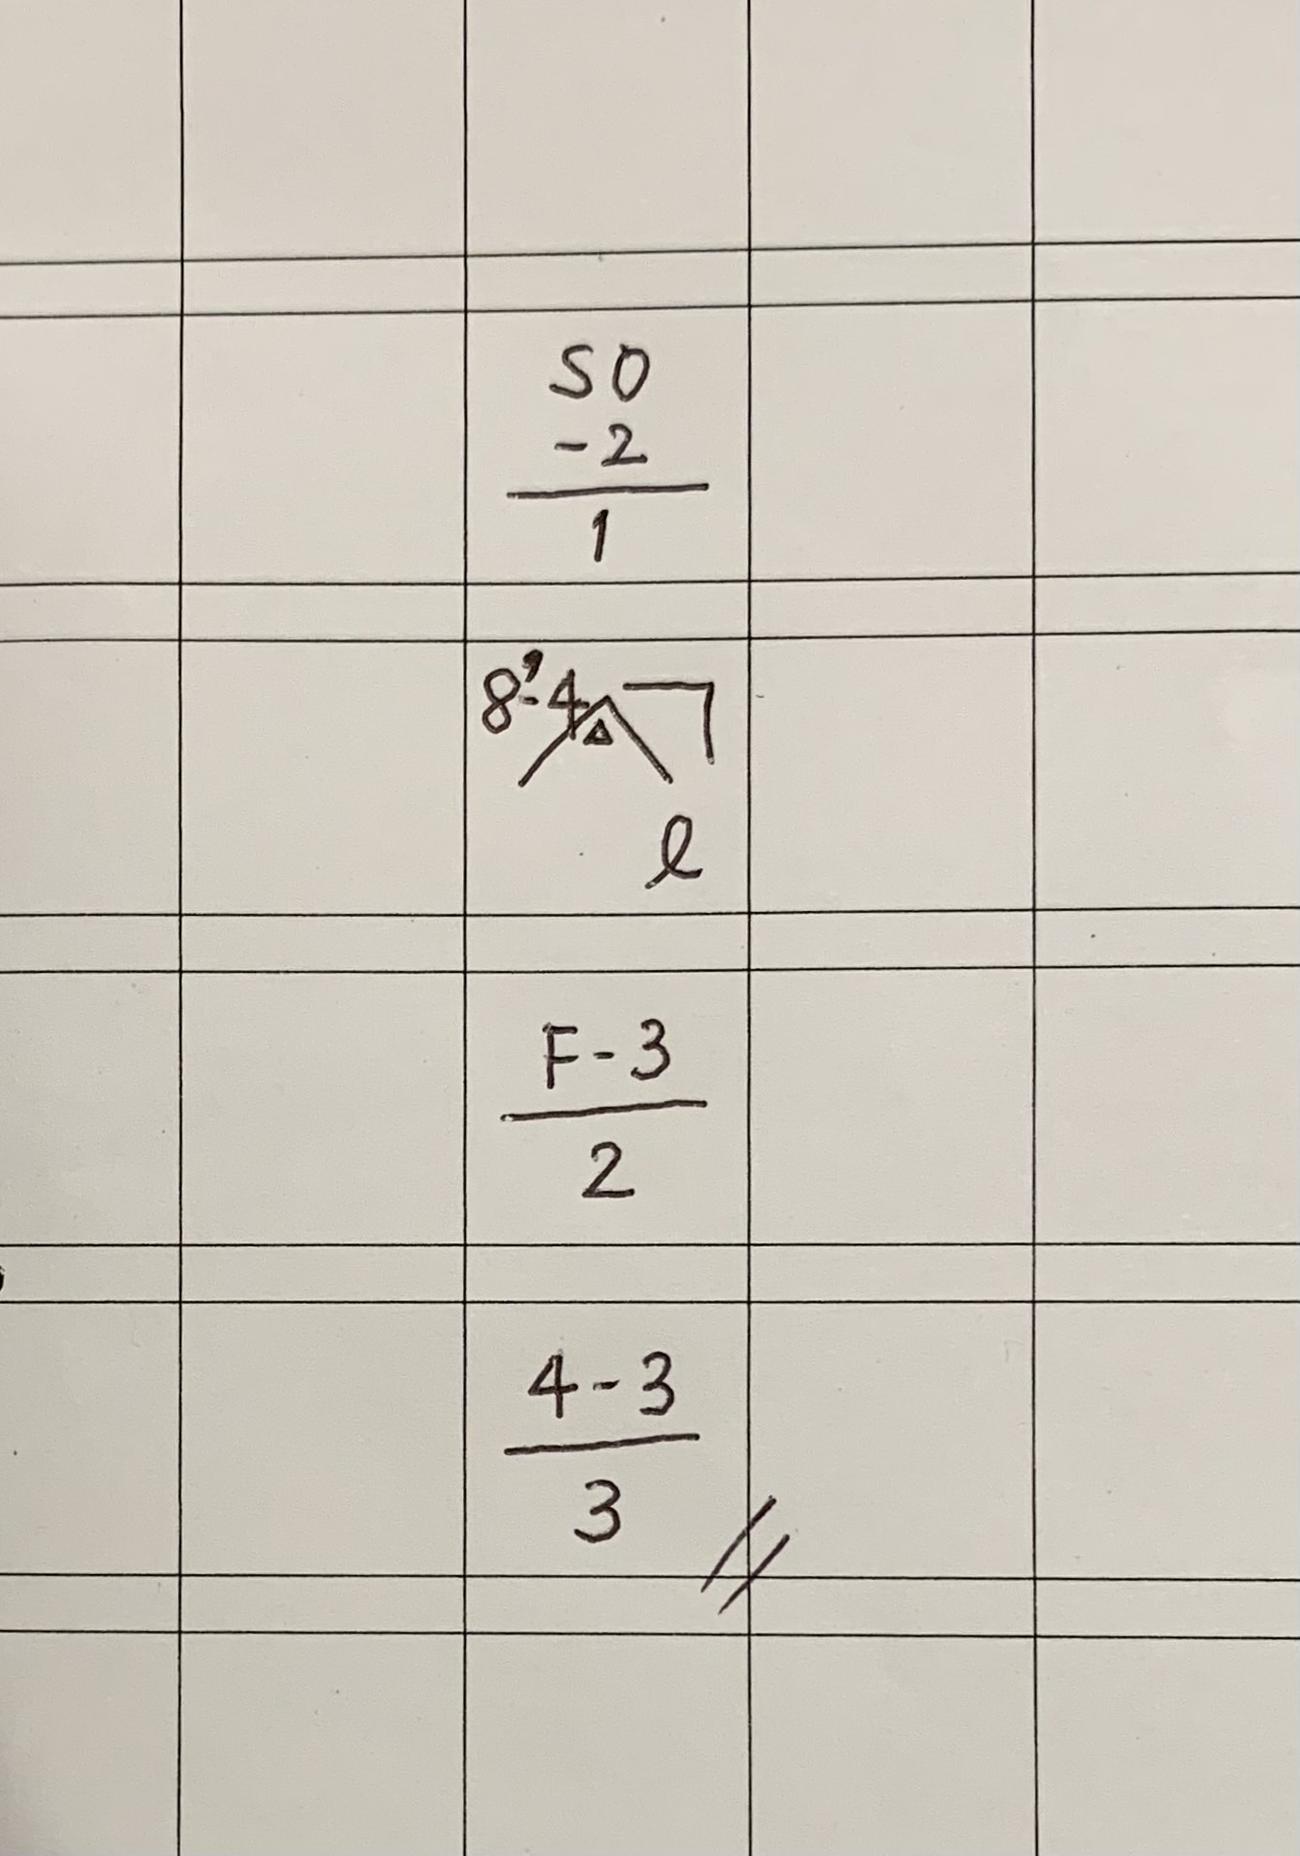 SO
-2
1
8'-4
l
F-3
2
4-3
3
//